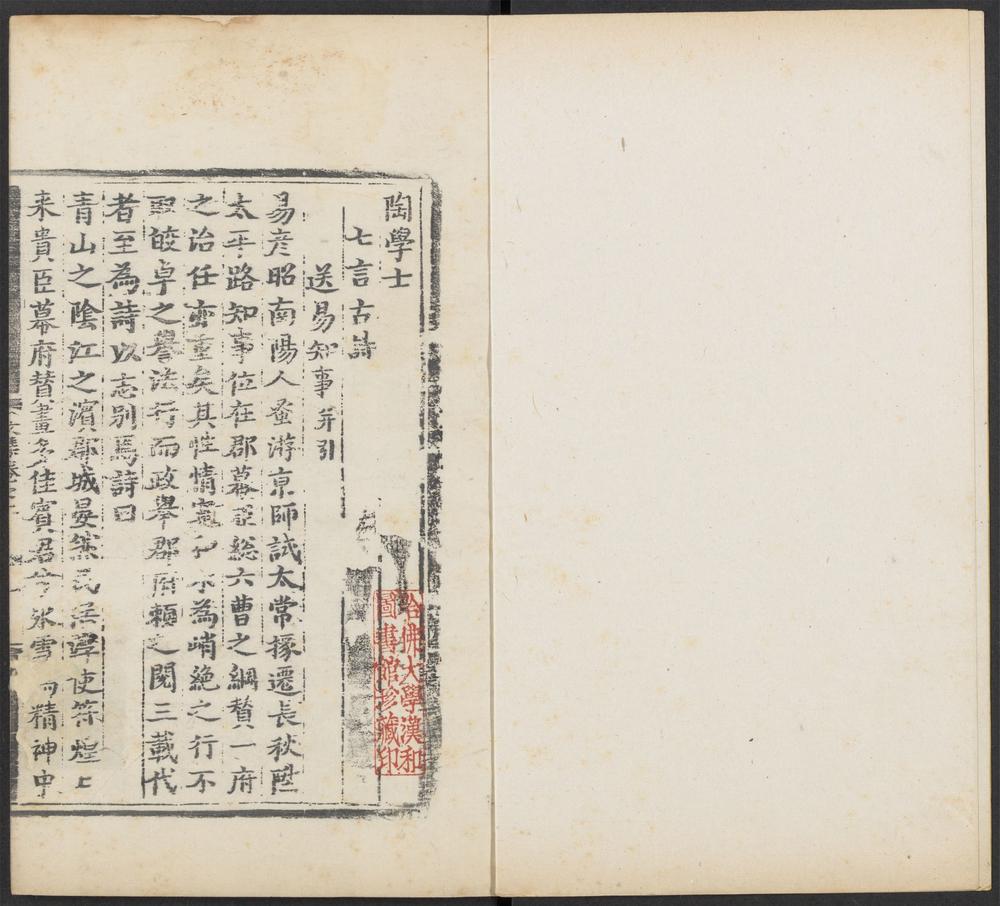 陶學士
七言古詩
送易知事并引
易彥昭南陽人蚤游京師試太常掾遷長秋陞
太平路知事位在郡幕亞総六曹之綱賛一府
之治任重矣其性情和為峭絶之行不
皎卓之譽法行而政舉郡府頼之閱三載代
者至為詩以志别焉詩曰
青山之陰江之濱鄣城晏然民使符煌上
来貴臣幕府賛畫多佳賓君冰雪精神中
哈佛大學漢和
圖書館珍藏印